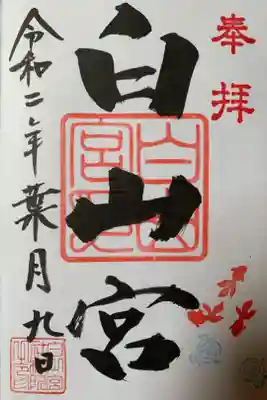 奉拝
白山宮
令和二年葉月九日